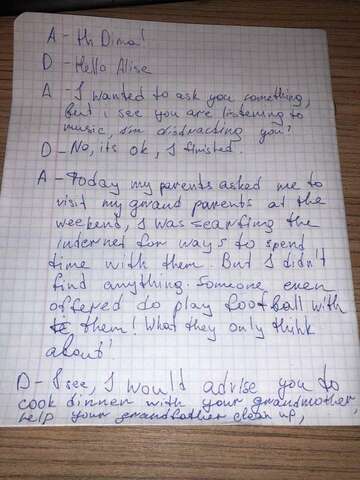 A - Hi Dima!
D - Hello Alise
A - I wanted to ask you something,
but i see you are listening to
music, im distracting you?
D - No, its ok, I finished.
A - Today my parents asked me to
visit my grand parents at the
weekend, I was searfing the
internet for ways to spend
time with them. But I didn't
find anything. Someone even
offered to play football with
them! What they only think
about!
D - I see, I would advise you to
cook dinner with your grandmother,
help your grandfather clean up,